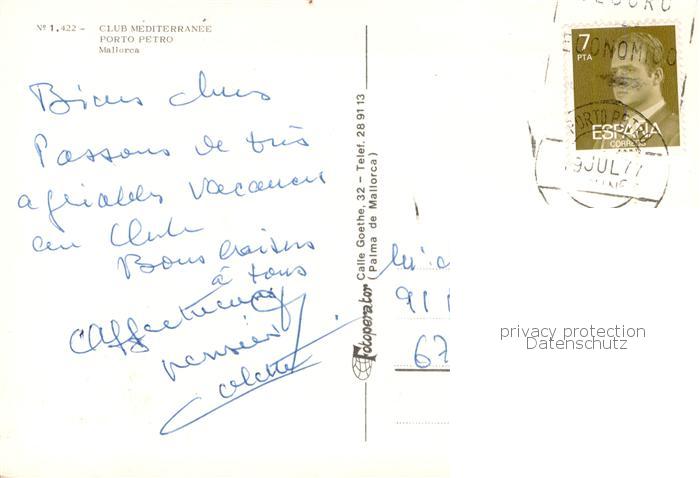 Nº 1.422 - CLUB MÉDITERRANÉE
PORTO PETRO
Mallorca
Biens chers
Passons de très
agréables vacances
au Club
Bons baisers
à tous
Affectueuses
pensées
Colette
Fotoperator Calle Goethe, 32 - Teléf. 28 91 13
(Palma de Mallorca)
7
PTA
ESPAÑA
CORREOS
ECONOMICO
PORTO PETRO
9 JUL 77
91
67
privacy protection
Datenschutz